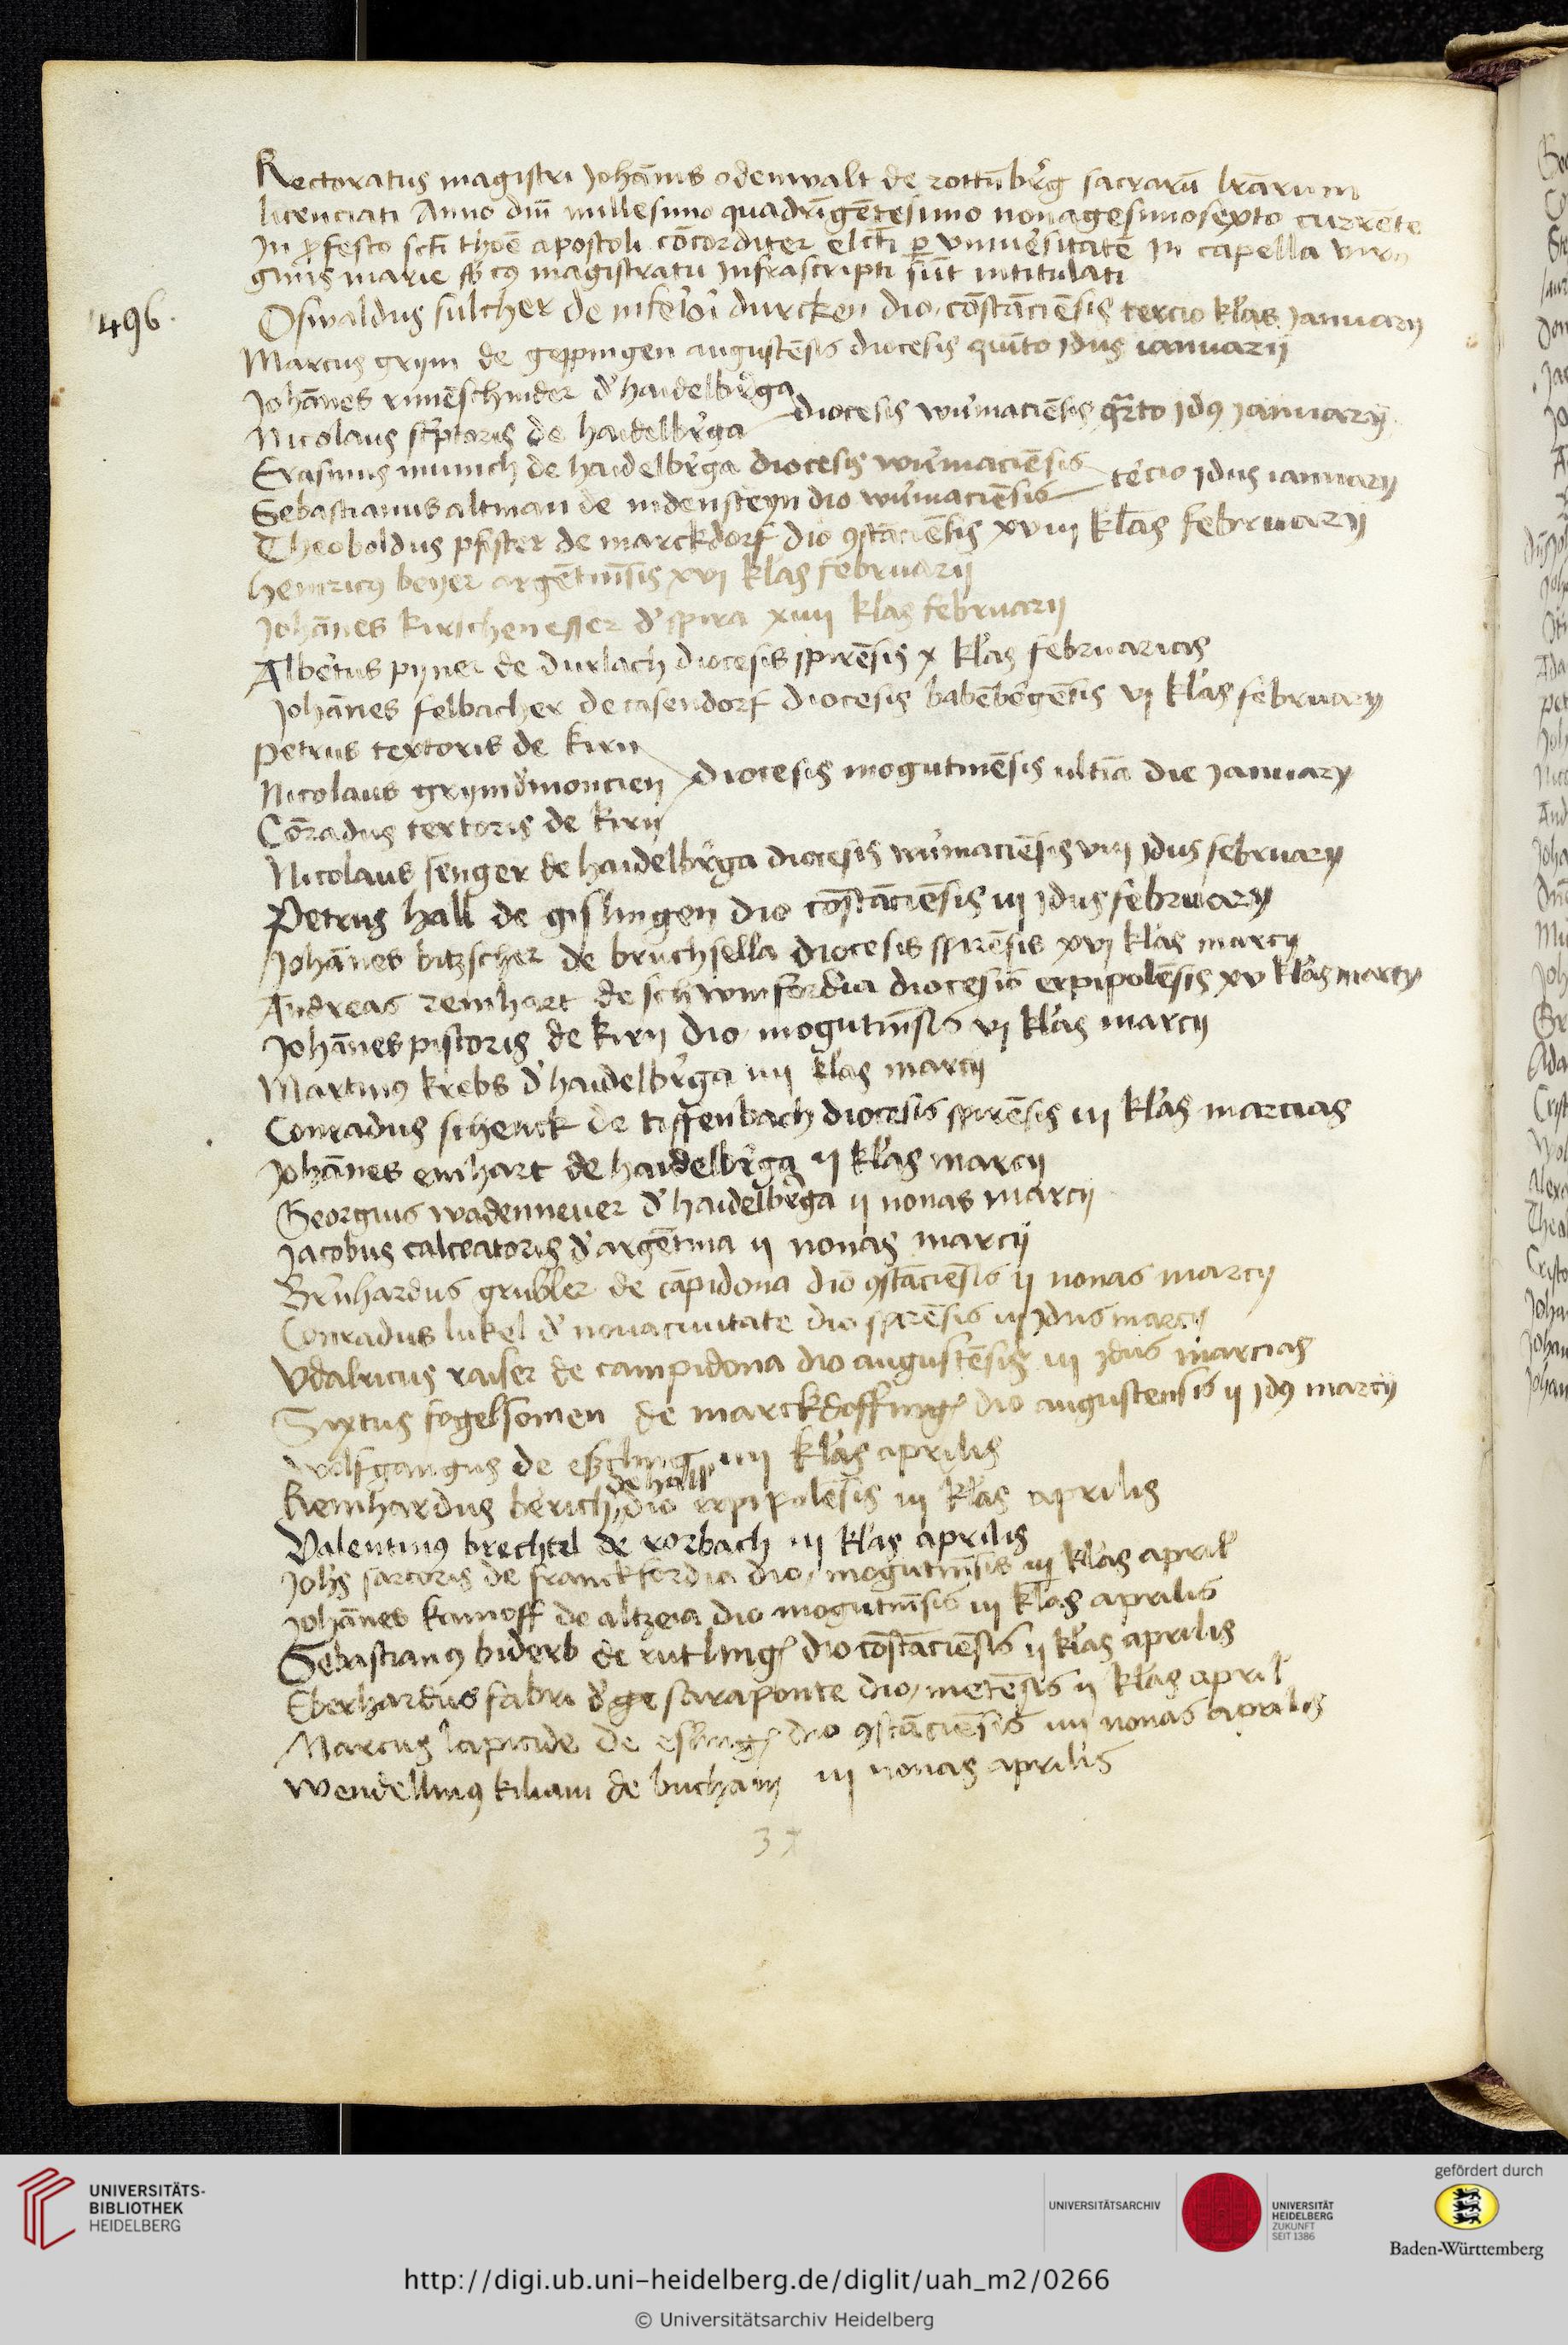 Rectoratus magistri Johānis odenwalt de rottūbr̄g sacrarū lr̄arum
licenciati Anno dn̄i millesimo quadrīgētesimo nonagesimosexto currēte
In ꝓfesto sctī thoē apostoli cōcorditer elcti ꝑ vniūersitatē In capella virgi
ginis marie sb cꝰ magistratu Infrascripti sūt intitulati
1496.
Oswaldus sulcher de inferiori durcken dio. cōstāciēsis tercio kl'as Januarij
Marcus grym de geppingen augustēsis diocesis quīto Idus ianuarij
Johānes rimēschnider d' haidelbr̄ga
Nicolaus scptoris de haidelbr̄ga diocesis wūrmaciēsis q̄rto Idꝰ Januarij
Erasmus munich de haidelbr̄ga diocesis wūrmaciēsis
Sebastianus altman de indensteyn dio wūrmaciēsis tercio Idus ianuarij
Theoboldus pfister de marckdorf dio ꝯstāciēsis xviij kl'as februarij
henricꝰ beyer argētinēsis xvj kl'as februarij
Johānes kirschenesser d' spira xiiij kl'as februarij
Albertus pyner de durlach diocesis spirēsis x kl'as februarias
Johānes felbacher de casendorf diocesis babēbergēsis vj kl'as februarij
Petrus textoris de kirn
Nicolaus grym de moncien diocesis mogutinēsis ultīa die Januarij
Cōradus textoris de kirn
Nicolaus senger de haidelbr̄ga diocesis wūrmaciēsis viij Idus februarij
Petrus hall de gislingen dio cōstāciēsis iij Idus februarij
Johānes bitzscher de bruchsella diocesis spirēsis xvj kl'as marcij
Andreas reinhart de schwinfordia diocesis erpipolēsis xv kl'as marcij
Johānes pistoris de kirn dio. mogutinēsis vj kl'as marcij
Martinꝰ krebs d' haidelbr̄ga iiij kl'as marcij
Conradus schenck de tiffenbach diocesis spirēsis iij kl'as marcias
Johānes einhart de haidelbr̄ga ij kl'as marcij
Georgius wadenneuer d' haidelbr̄ga ij nonas marcij
Jacobus calceatoris d' argētina ij nonas marcij
Br̄nhardus grubler de cāpidona dio ꝯstāciēsis ij nonas marcij
Conradus lukel d' nouaciuitate dio spirēsis iij Idus marcij
Vdalricus raiser de campidona dio augustēsis iij Idus marcias
Sixtus fogelsomen de marckdoffing' dio augustensis ij Idꝰ marcij
Wolfgangus de essling' iiij kl'as aprilis
de hall
Reinhardus berich, dio erpipolēsis iij kl'as aprilis
Valentinꝰ brechtel de rorbach iij kl'as aprilis
Joh's sartoris de franckfordia dio. mogutinēsis iij kl'as april'
Johānes knnoff de altzeia dio mogutinēsis iij kl'as aprilis
Sebastianꝰ biderb de rutling' dio cōstāciēsis ij kl'as aprilis
Eberhardus fabri d' ge saraponte dio. metēsis ij kl'as april'
Marcus lapicide de esling' dio ꝯstāciēsis iiij nonas aprilis
Wendellinꝰ kiliani de bucham iij nonas aprilis
37
UNIVERSITÄTS-
BIBLIOTHEK
HEIDELBERG
UNIVERSITÄTSARCHIV
UNIVERSITÄT
HEIDELBERG
ZUKUNFT
SEIT 1386
gefördert durch
Baden-Württemberg
http://digi.ub.uni-heidelberg.de/diglit/uah_m2/0266
© Universitätsarchiv Heidelberg